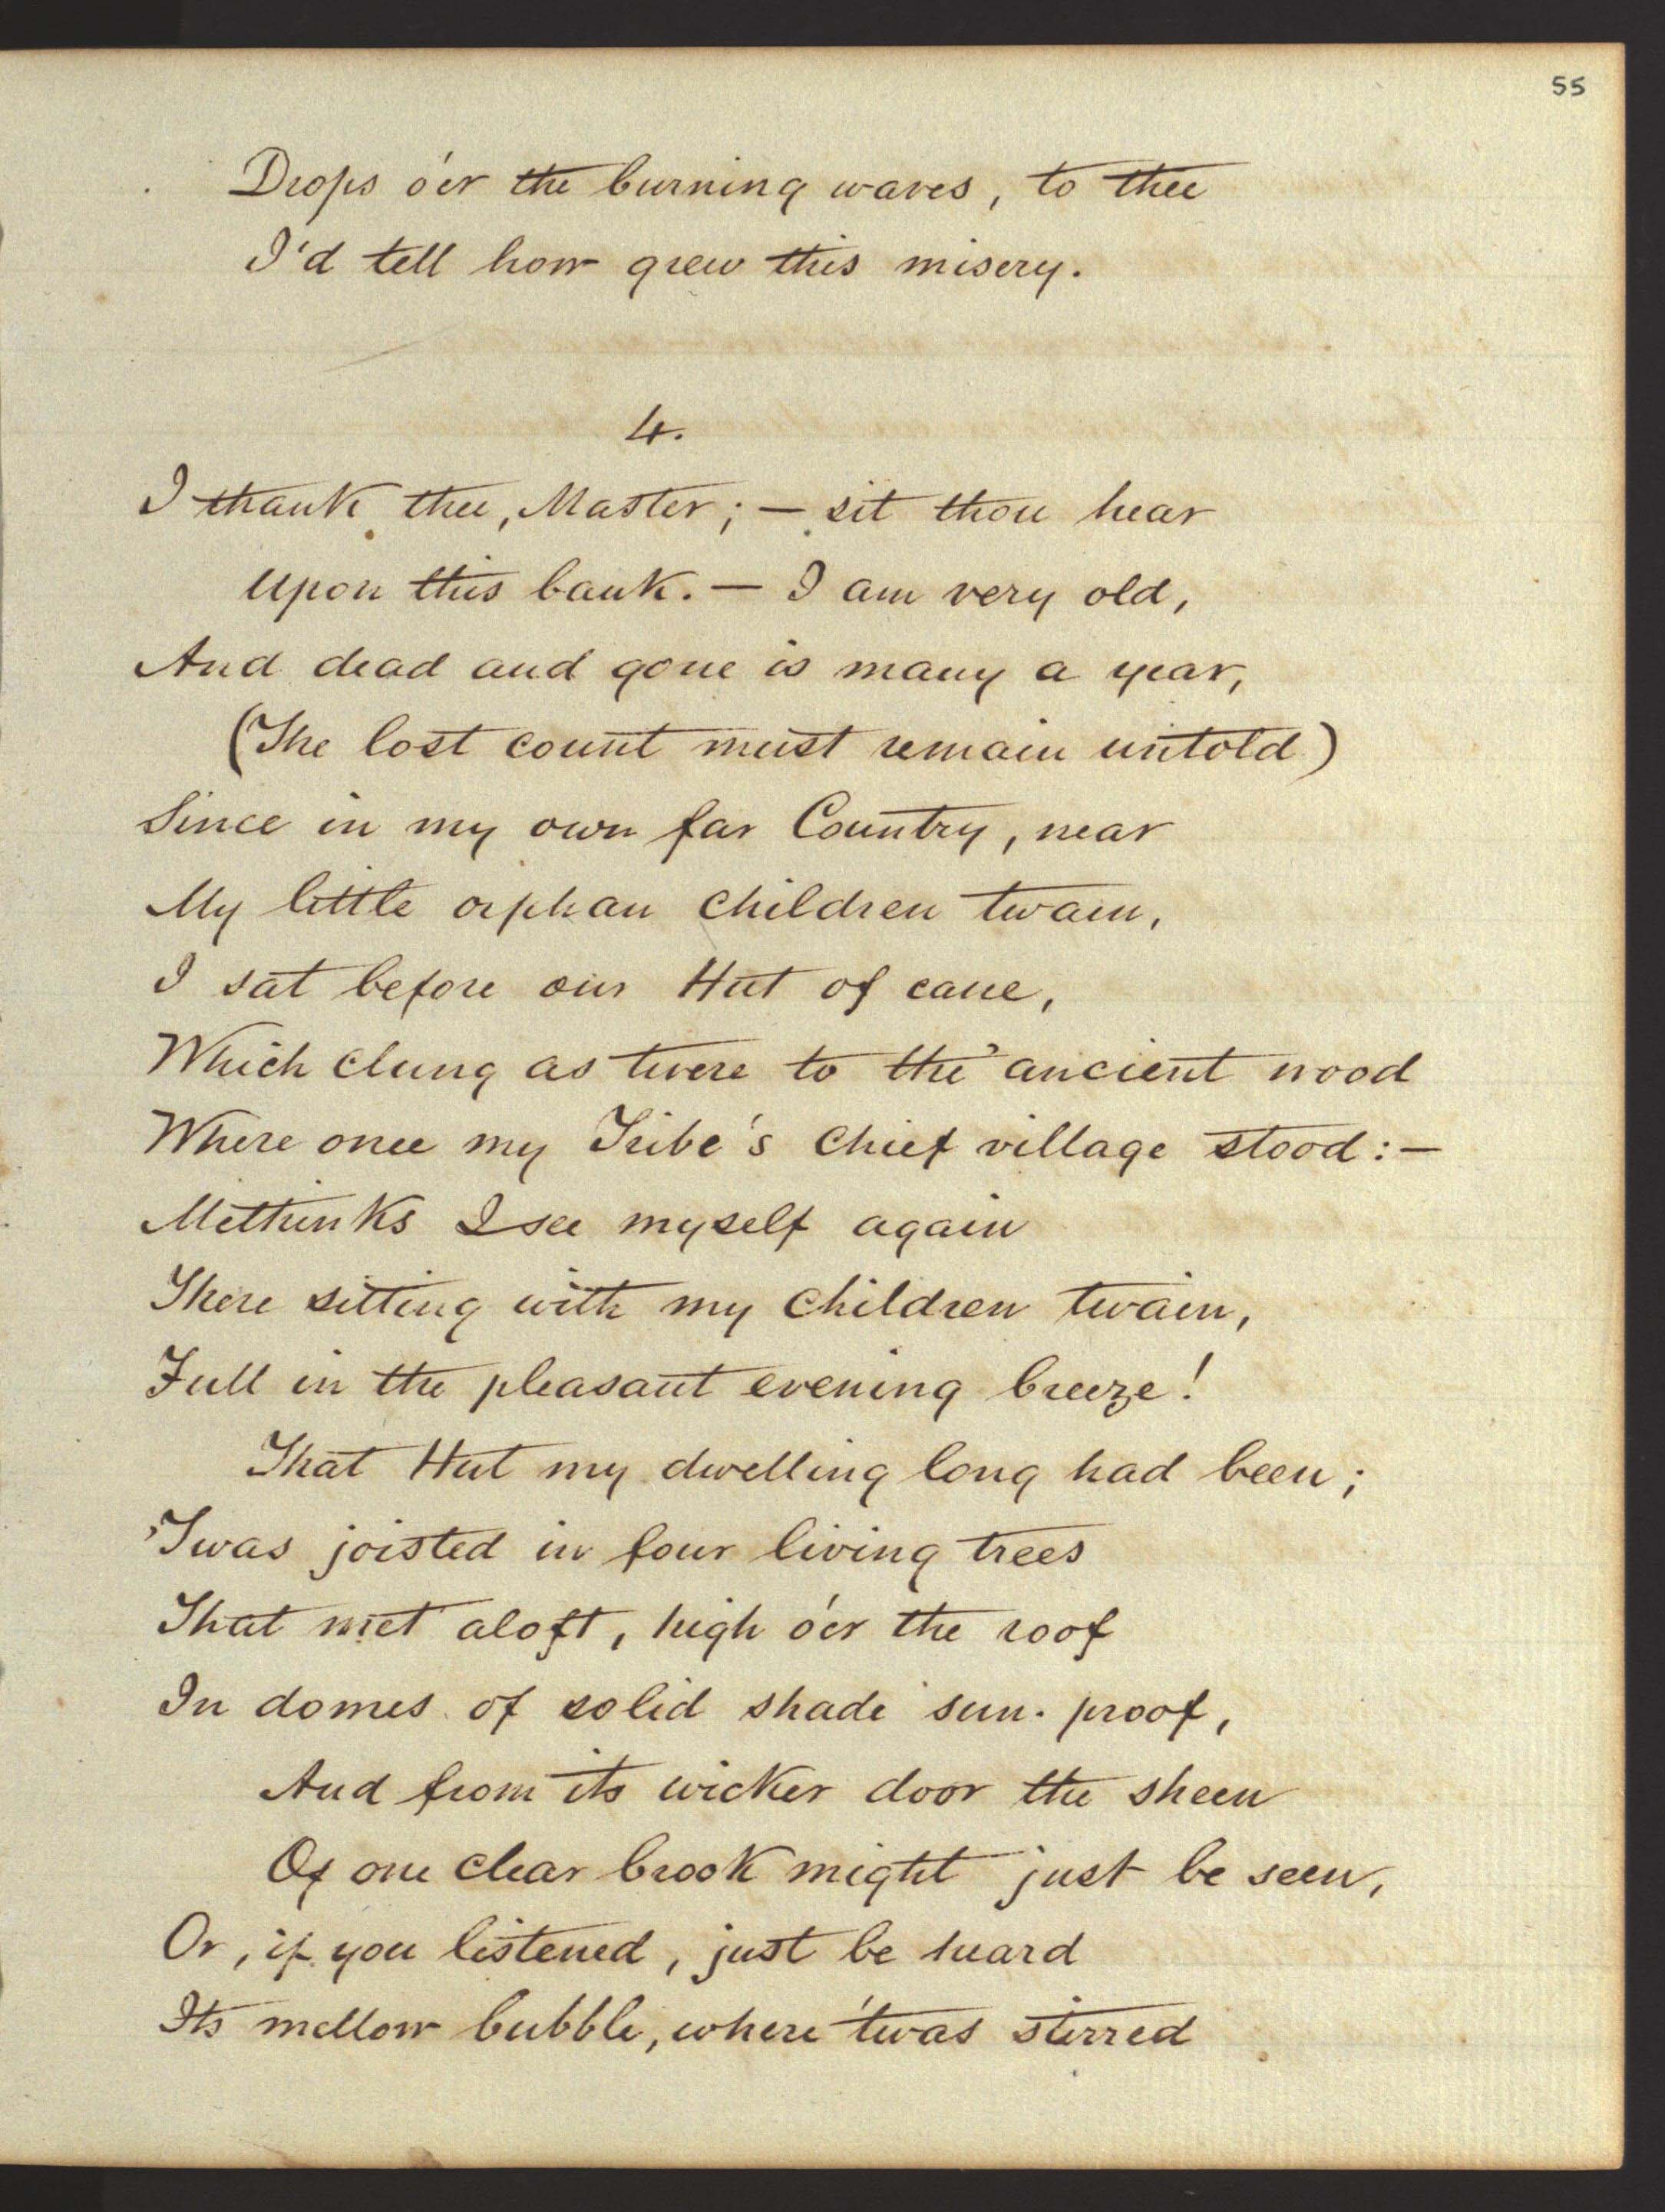 55
Drops o'er the burning waves, to thee
I'd tell how grew this misery.
4.
I thank thee, Master; — sit thou hear
Upon this bank. — I am very old,
And dead and gone is many a year,
(The lost count must remain untold)
Since in my own far Country, near
My little orphan children twain,
I sat before our Hut of cane,
Which clung as twere to the ancient wood
Where once my Tribe's chief village stood: —
Methinks I see myself again
There sitting with my children twain,
Full in the pleasant evening breeze!
That Hut my dwelling long had been;
'Twas joisted in four living trees
That met aloft, high o'er the roof
In domes of solid shade sun-proof,
And from its wicker door the sheen
Of one clear brook might just be seen,
Or, if you listened, just be heard
Its mellow bubble, where 'twas stirred